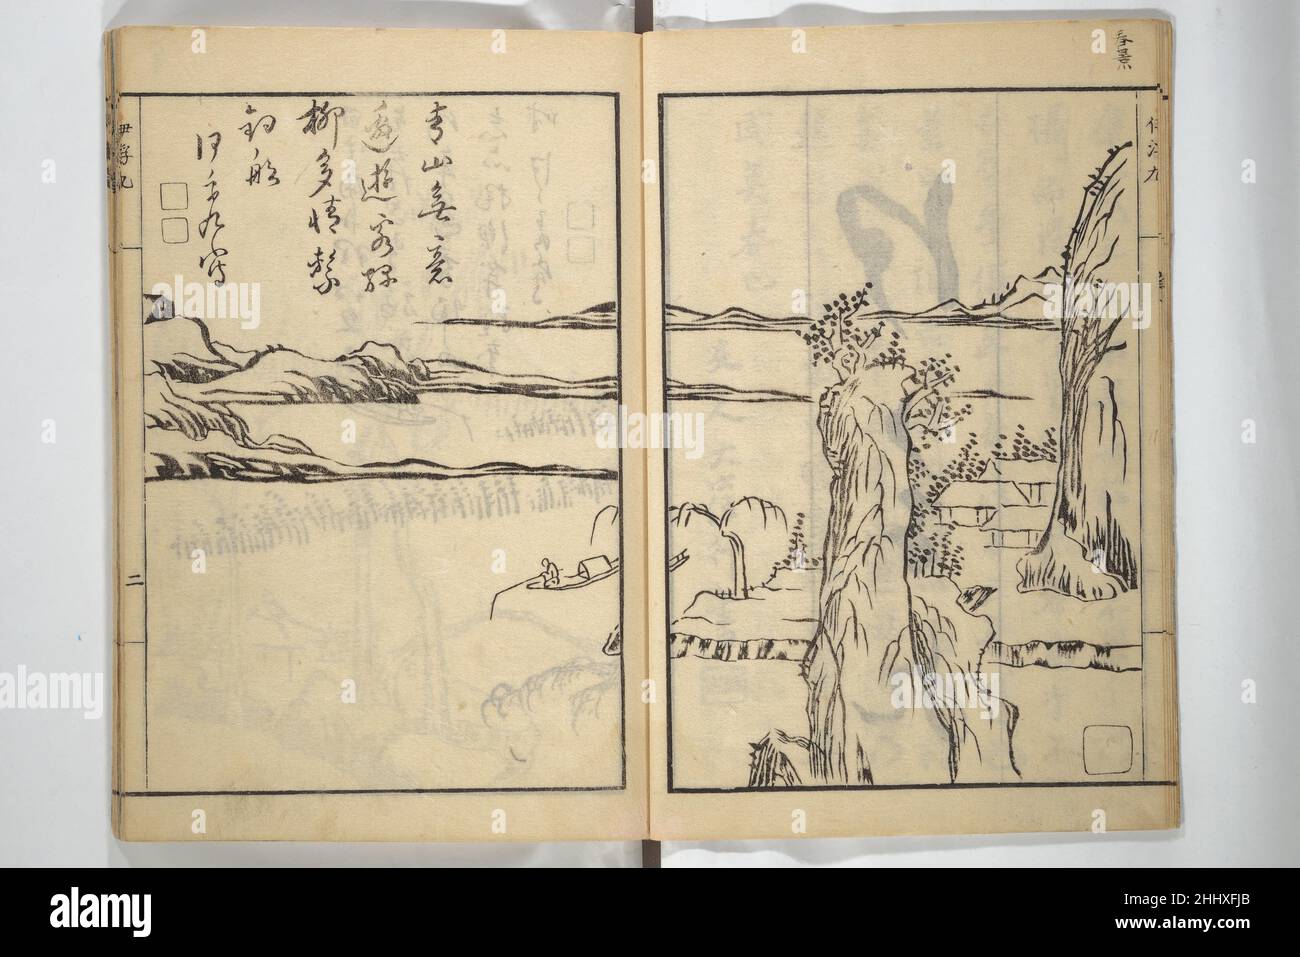 春景
伊孚九
青山無意
邀遊客緑
柳多情繫
釣船
伊孚九寫
伊孚九
二
alamy
Image ID: 2HHXFJB
www.alamy.com